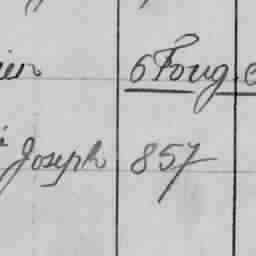 6 Foug.
Joseph 857